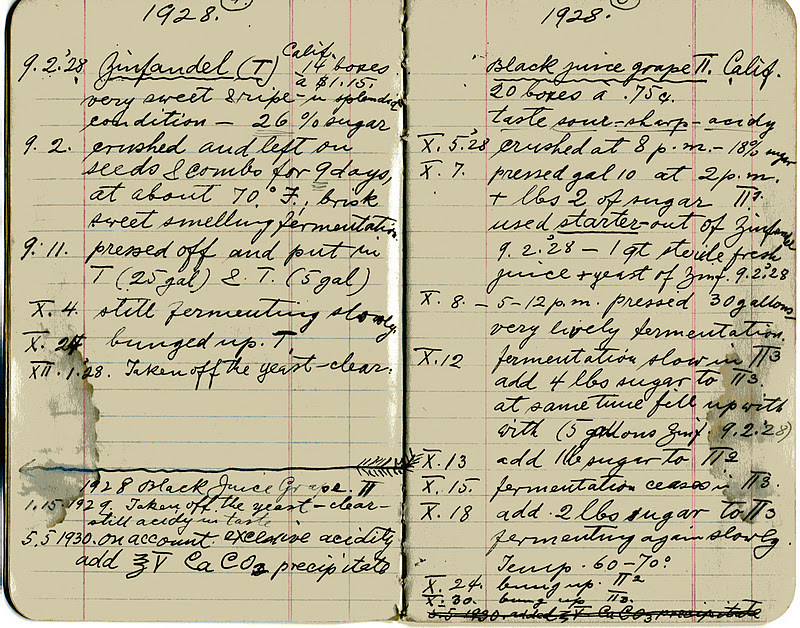 1928.
Calif.
9.2.'28 Zinfandel (T) 14 boxes
a $1.15.
very sweet & ripe - in splendid
condition — 26 % sugar
9. 2. crushed and left on
seeds & combs for 9 days,
at about 70° F., brisk
sweet smelling fermentation.
9. 11. pressed off and put in
T (25 gal) & T. (5 gal)
X. 4. still fermenting slowly.
X. 24 bunged up. T.
XII. 1.'28. Taken off the yeast-clear.
1928 Black Juice Grape. II
1.15.1929. Taken off the yeast-clear-
still acidy in taste
5.5 1930. on account excessive acidity
add ℥V CaCO3 precipitate
1928.
Black juice grape II. Calif.
20 boxes a .75¢.
taste sour-sharp-acidy
X. 5.'28 crushed at 8 p.m. - 18% sugar
X. 7. pressed gal 10 at 2 p.m.
+ lbs 2 of sugar II1
used starter-out of Zinfandel
9.2.'28 — 1 qt sterile fresh
juice + yeast of Zinf. 9.2.'28
X. 8. - 5-12 p.m. pressed 30 gallons,
very lively fermentation.
X.12 fermentation slow in II3
add 4 lbs sugar to II3.
at same time fill up with
with (5 gallons Zinf 9.2.'28)
X.13 add 1 lb sugar to II2
X.15. fermentation ceases in II3.
X.18 add 2 lbs sugar to II3
fermenting again slowly.
Temp. 60-70°
X. 24. bung up. II2
X. 30. bung up II3.
5.5 1930. added ℥V CaCO3 precipitate